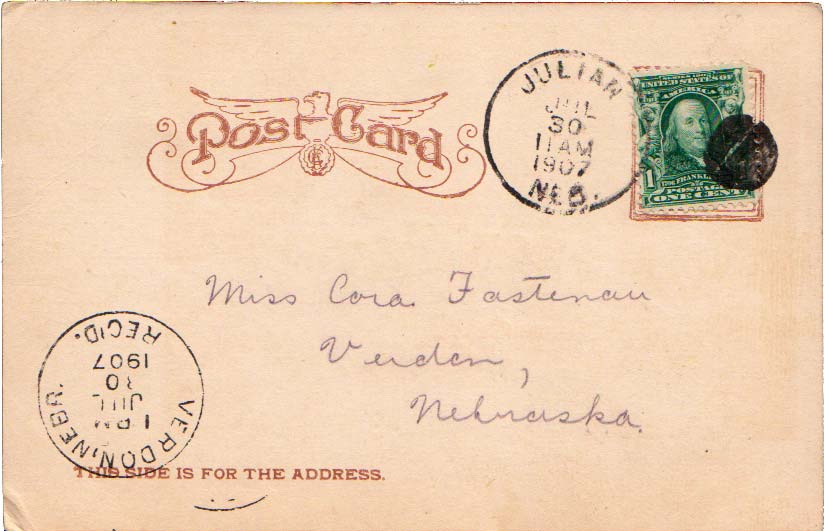 Post Card
JULIAN
JUL
30
11 AM
1907
NEB.
UNITED STATES OF
AMERICA
1
FRANKLIN
POSTAGE
ONE CENT
Miss Cora Fastenau
Verdon,
Nebraska
VERDON, NEBR.
1 PM
JUL
30
1907
REC'D.
THIS SIDE IS FOR THE ADDRESS.